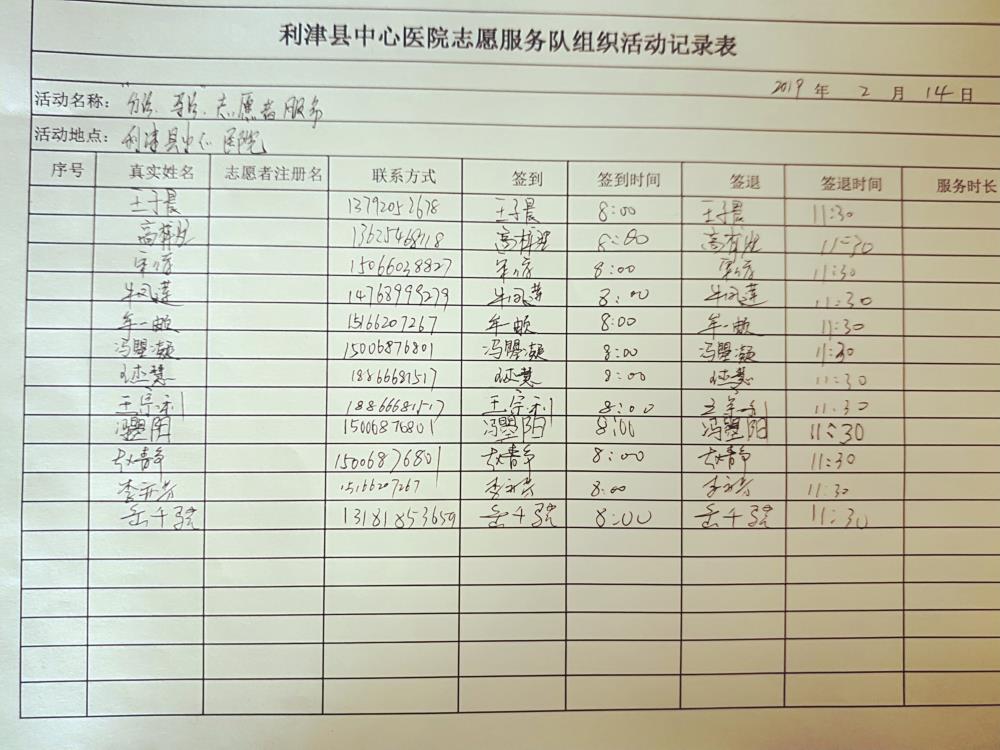 利津县中心医院志愿服务队组织活动记录表
2019 年 2 月 14 日
活动名称： "分诊、导诊"志愿者服务
活动地点： 利津县中心医院
序号 真实姓名 志愿者注册名 联系方式 签到 签到时间 签退 签退时间 服务时长
王子晨 13792052678 王子晨 8:00 王子晨 11:30
13625468118 8:00 11:30
15066038827 8:00 11:30
牛凤莲 14768999279 牛凤莲 8:00 牛凤莲 11:30
牟一頔 15166207267 牟一頔 8:00 牟一頔 11:30
冯曌凝 15006876801 冯曌凝 8:00 冯曌凝 11:30
18866681517 8:00 11:30
王宗利 18866681517 王宗利 8:00 王宗利 11:30
冯曌阳 15006876801 冯曌阳 8:00 冯曌阳 11:30
赵静 15006876801 赵静 8:00 赵静 11:30
15166207267 8:00 11:30
13181853659 8:00 11:30